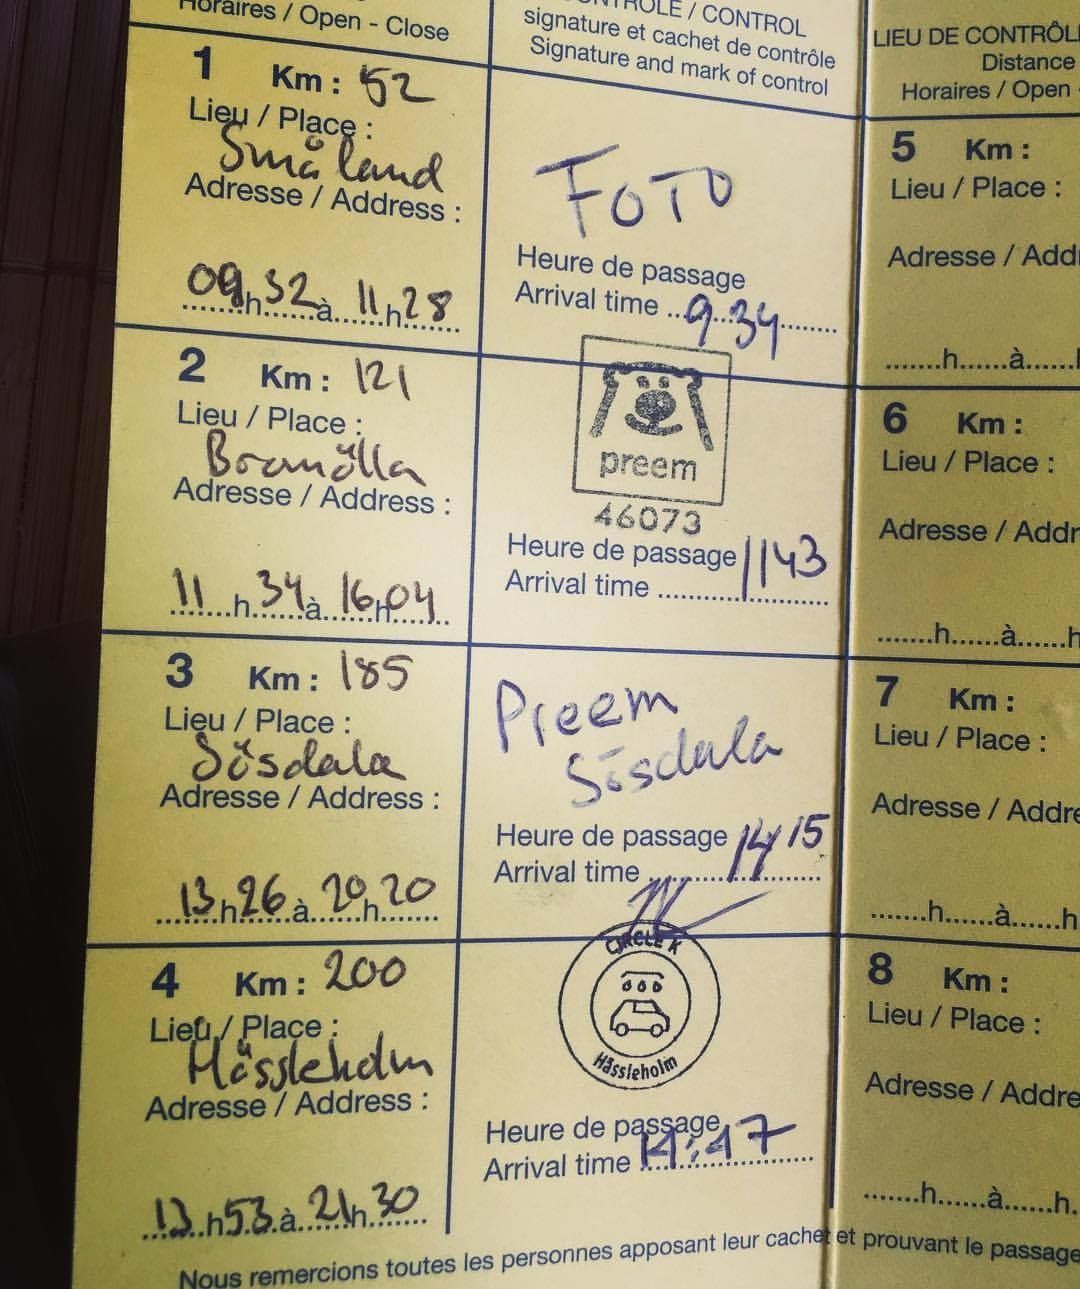 Horaires / Open - Close
CONTRÔLE / CONTROL
signature et cachet de contrôle
Signature and mark of control
LIEU DE CONTRÔL
Distance
Horaires / Open -
1 Km : 52
Lieu / Place :
Småland
Adresse / Address :
09h32à11h28
FOTO
Heure de passage
Arrival time 9.34
2 Km : 121
Lieu / Place :
Bromölla
Adresse / Address :
11h34à16h04
preem
46073
Heure de passage
Arrival time 1143
3 Km : 185
Lieu / Place :
Sösdala
Adresse / Address :
13h26à20h20
Preem
Sösdala
Heure de passage
Arrival time 1415
4 Km : 200
Lieu / Place :
Hässleholm
Adresse / Address :
13h53à21h30
CIRCLE K
Hässleholm
Heure de passage
Arrival time 14:47
5 Km :
Lieu / Place :
Adresse / Add
......h......à......
6 Km :
Lieu / Place :
Adresse / Addr
.......h......à......h
7 Km :
Lieu / Place :
Adresse / Addre
.......h......à......h
8 Km :
Lieu / Place :
Adresse / Addre
.......h......à......h.
Nous remercions toutes les personnes apposant leur cachet et prouvant le passage